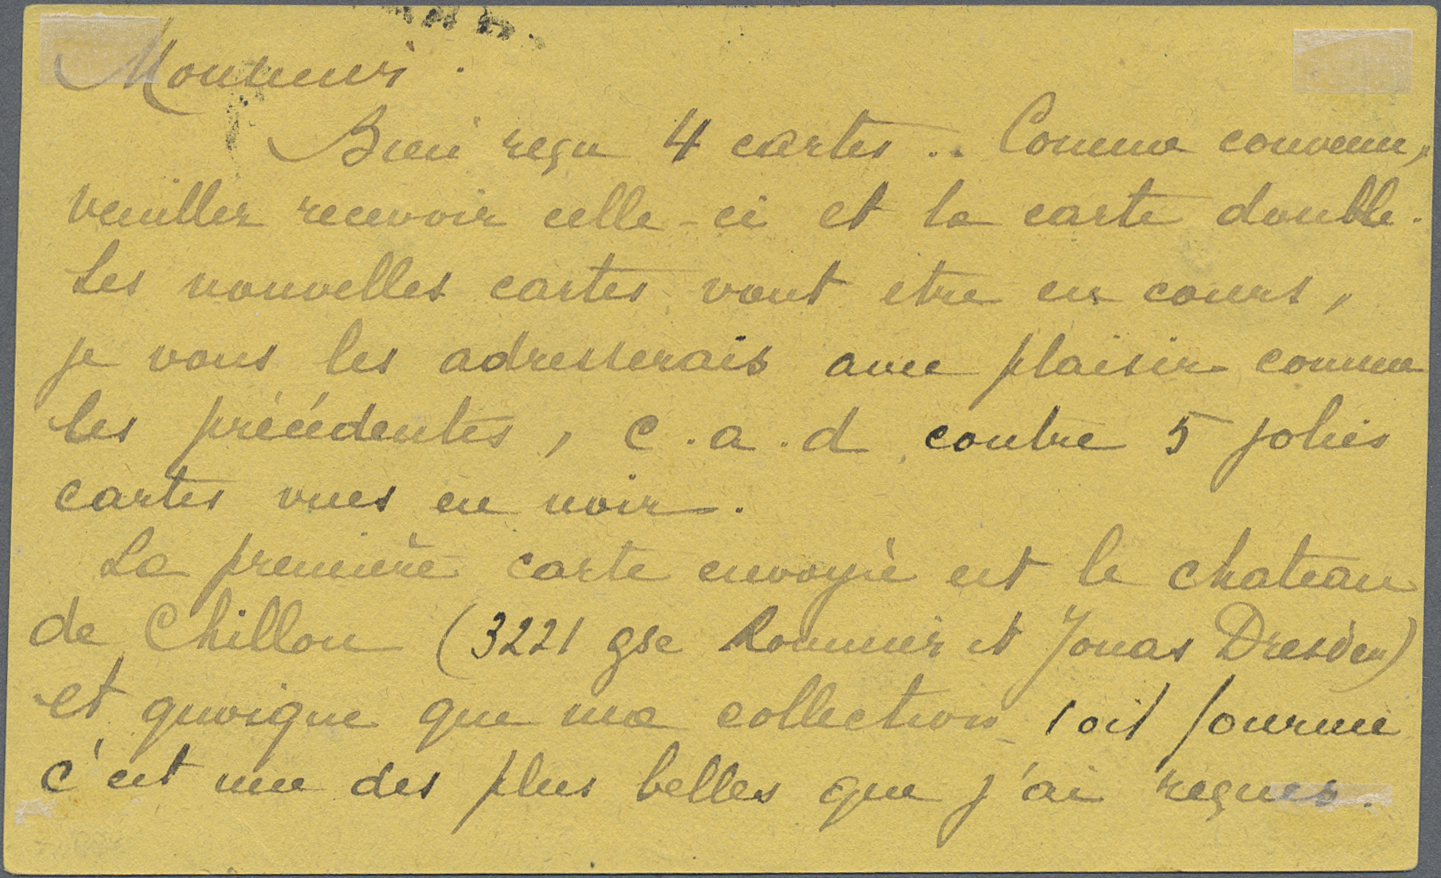 Monsieur.
Bien reçu 4 cartes.. Comme convenu,
veuillez recevoir celle-ci et la carte double.
Les nouvelles cartes vont etre en cours,
je vous les adresserais avec plaisir comme
les précédentes, c.a.d contre 5 jolies
cartes vues en noir.
La première carte envoyée est le chateau
de Chillon (3221 gse Rommler et Jonas Dresden)
et quoique que ma collection soit fournie
c'est une des plus belles que j'ai reçues.